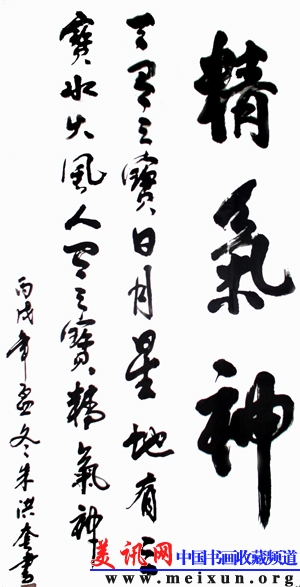 精氣神
天有三寶日月星地有三
寶水火風人有三寶精氣神
丙戌年孟冬朱洪奎書
美讯网 中国书画收藏频道
www.meixun.org